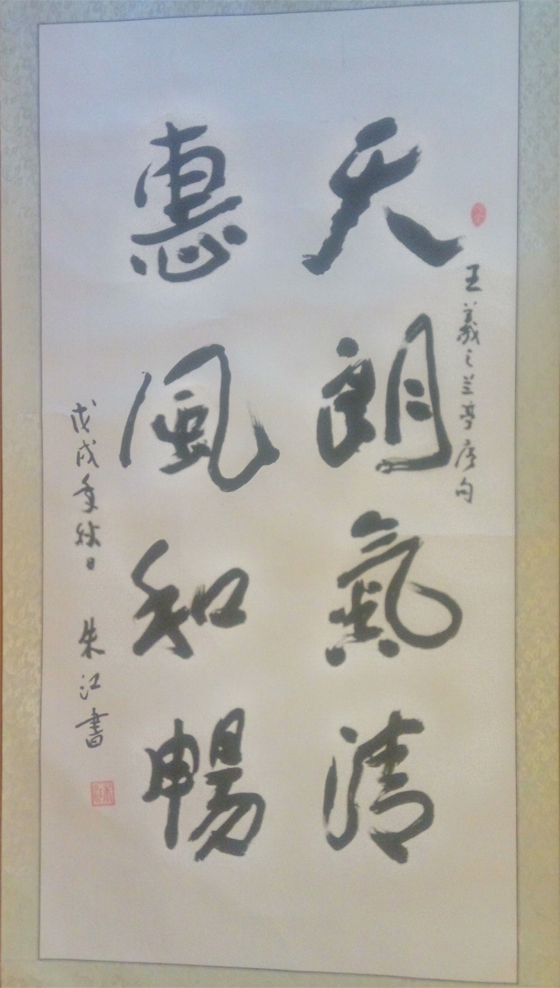 天朗氣清
惠風和暢
王羲之兰亭序句
戊戌年秋日 朱江書